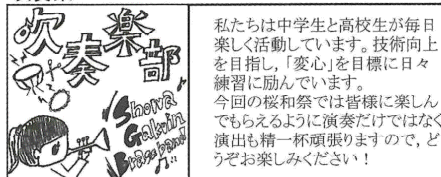 吹奏楽部
Showa
Gakuin
Brassband
私たちは中学生と高校生が毎日
楽しく活動しています。技術向上
を目指し、「変心」を目標に日々
練習に励んでいます。
今回の桜和祭では皆様に楽しん
でもらえるように演奏だけではなく
演出も精一杯頑張りますので、ど
うぞお楽しみください！